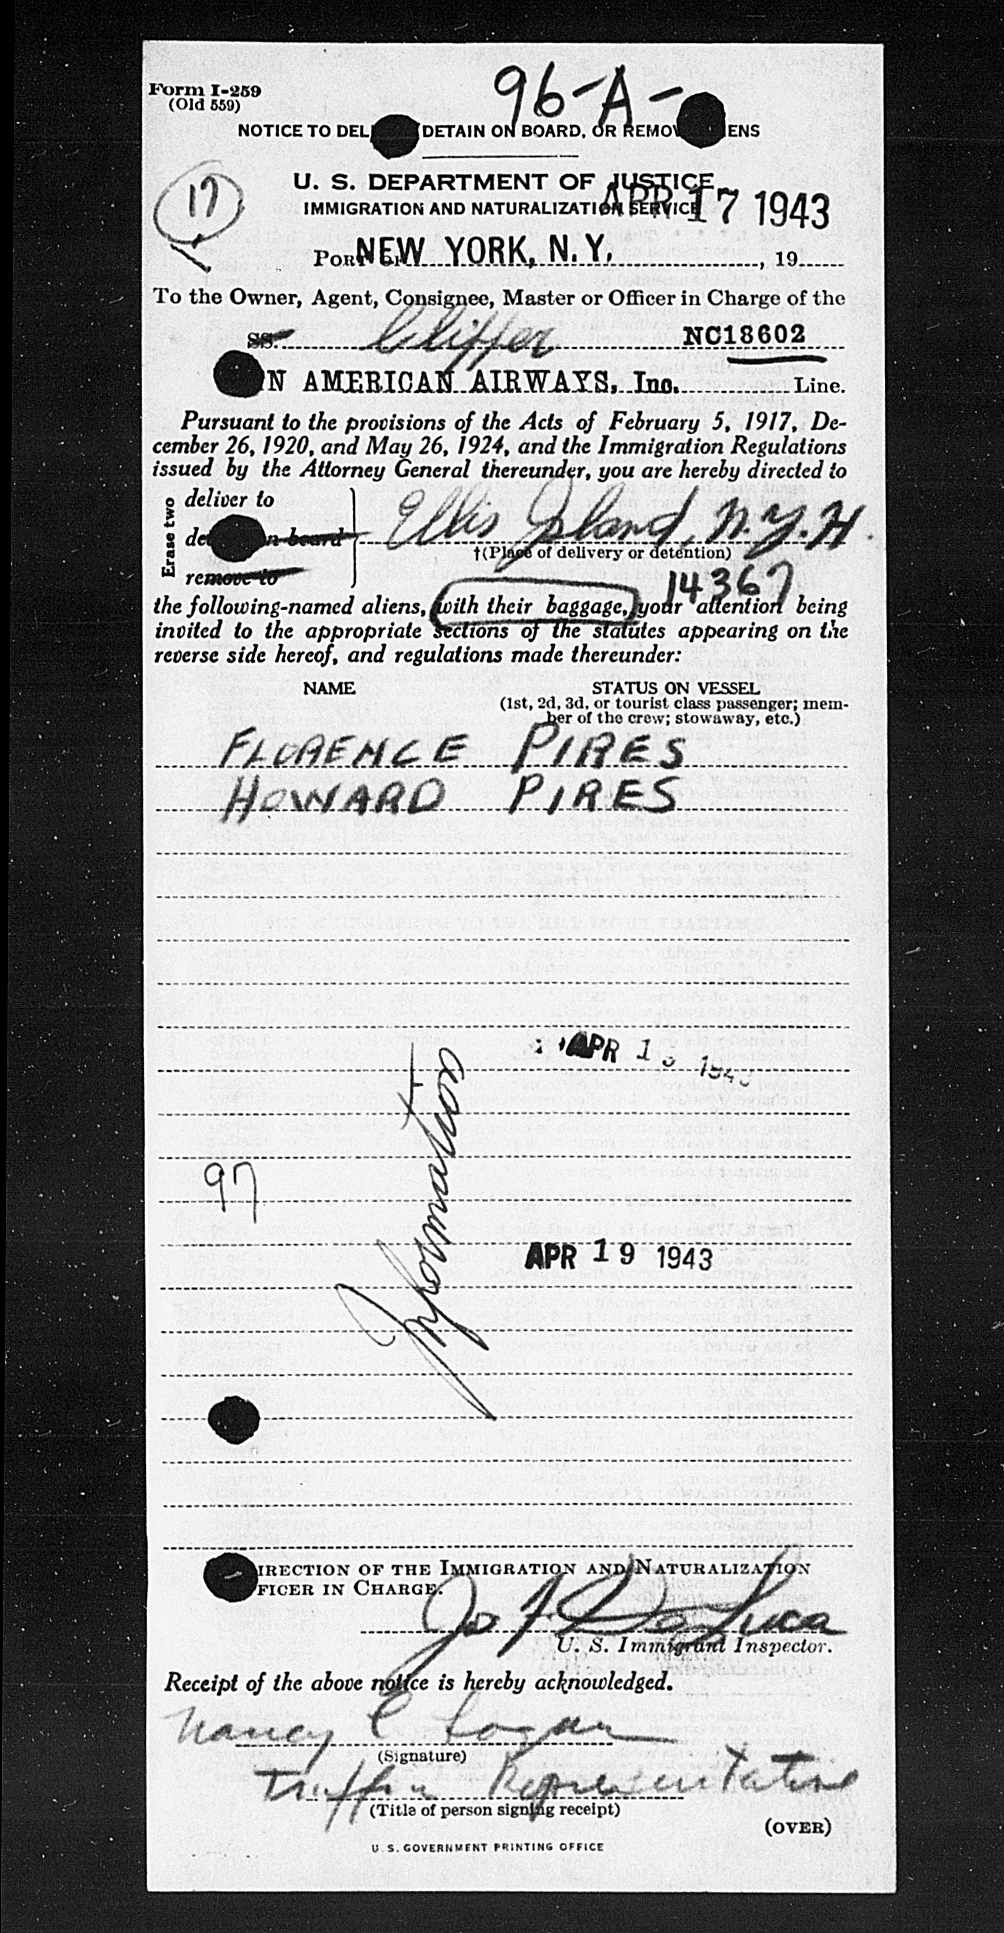 96-A-
Form I-259
(Old 559)
NOTICE TO DEL DETAIN ON BOARD, OR REMOV ENS
17
U. S. DEPARTMENT OF JUSTICE
IMMIGRATION AND NATURALIZATION SERVICE
APR 17 1943
PORT OF NEW YORK, N. Y. , 19
To the Owner, Agent, Consignee, Master or Officer in Charge of the
SS. Clipper NC18602
N AMERICAN AIRWAYS, Inc. Line.
Pursuant to the provisions of the Acts of February 5, 1917, De-
cember 26, 1920, and May 26, 1924, and the Immigration Regulations
issued by the Attorney General thereunder, you are hereby directed to
Erase two
deliver to
de n board
remove to
Ellis Island, N.Y.H.
†(Place of delivery or detention)
14367
the following-named aliens, with their baggage, your attention being
invited to the appropriate sections of the statutes appearing on the
reverse side hereof, and regulations made thereunder:
NAME STATUS ON VESSEL
(1st, 2d, 3d, or tourist class passenger; mem-
ber of the crew; stowaway, etc.)
FLORENCE PIRES
HOWARD PIRES
APR 1 1943
Information
97
APR 19 1943
IRECTION OF THE IMMIGRATION AND NATURALIZATION
FICER IN CHARGE.
Jo F De Luca
U. S. Immigrant Inspector.
Receipt of the above notice is hereby acknowledged.
Nancy C Logan
(Signature)
Traffic Representative
(Title of person signing receipt)
(OVER)
U. S. GOVERNMENT PRINTING OFFICE